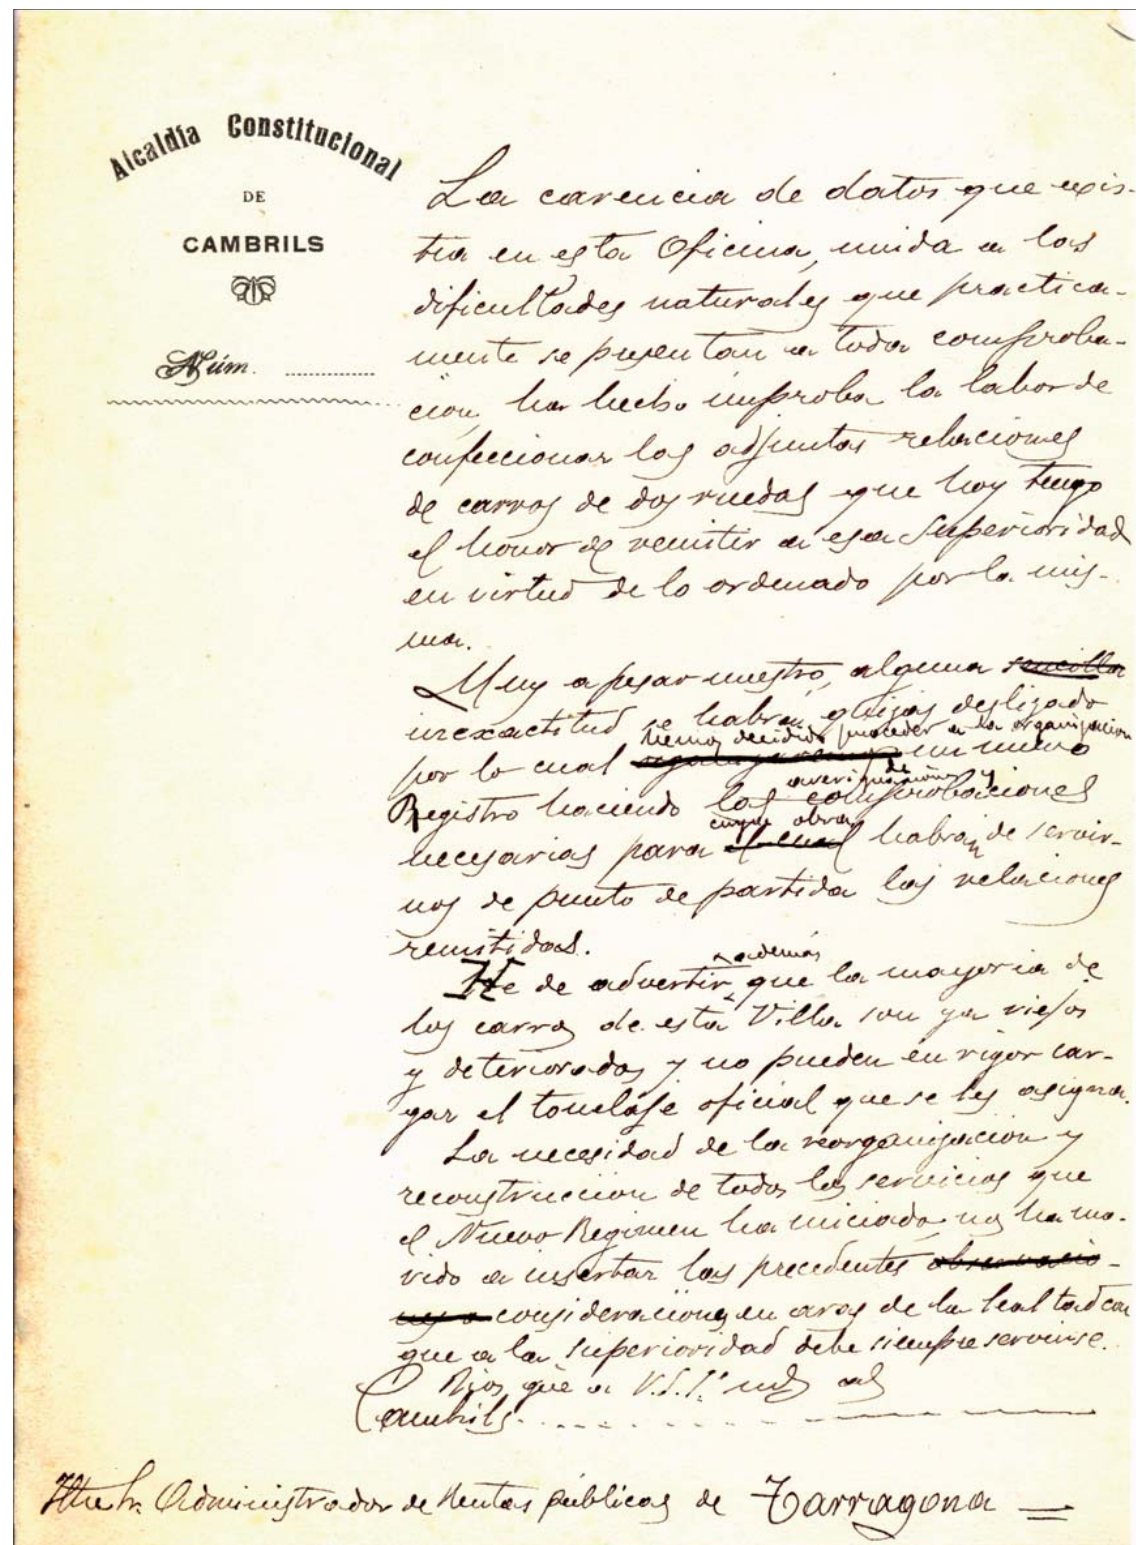 Alcaldía Constitucional
DE
CAMBRILS
Núm.
La carencia de datos que exis-
tia en esta Oficina, unida a las
dificultades naturales que practica-
mente se presentan a toda comproba-
ción, ha hecho improba la labor de
confeccionar las adjuntas relaciones
de carros de dos ruedas que hoy tengo
el honor de remitir a esa Superioridad
en virtud de lo ordenado por la mis-
ma.
Muy a pesar nuestro, alguna sencilla
inexactitud se habrá quizas deslizado
hemos decidido proceder a la organizacion
por lo cual un nuevo
de
averiguaciones y
Registro haciendo las comprobaciones
cuya obra
necesarias para el cual habrán de servir-
nos de punto de partida las relaciones
remitidas.
además
He de advertir que la mayoria de
los carros de esta Villa son ya viejos
y deteriorados y no pueden en rigor car-
gar el tonelaje oficial que se les asigna.
La necesidad de la reorganización y
reconstruccion de todos los servicios que
el Nuevo Regimen ha iniciado nos ha mo-
vido a insertar las precedentes observacio-
nes o consideraciones en aras de la lealtad con
que a la superioridad debe siempre servirse.
Dios gue a V.S.I. ms as
Cambrils
Iltre Sr. Administrador de Rentas públicas de Tarragona